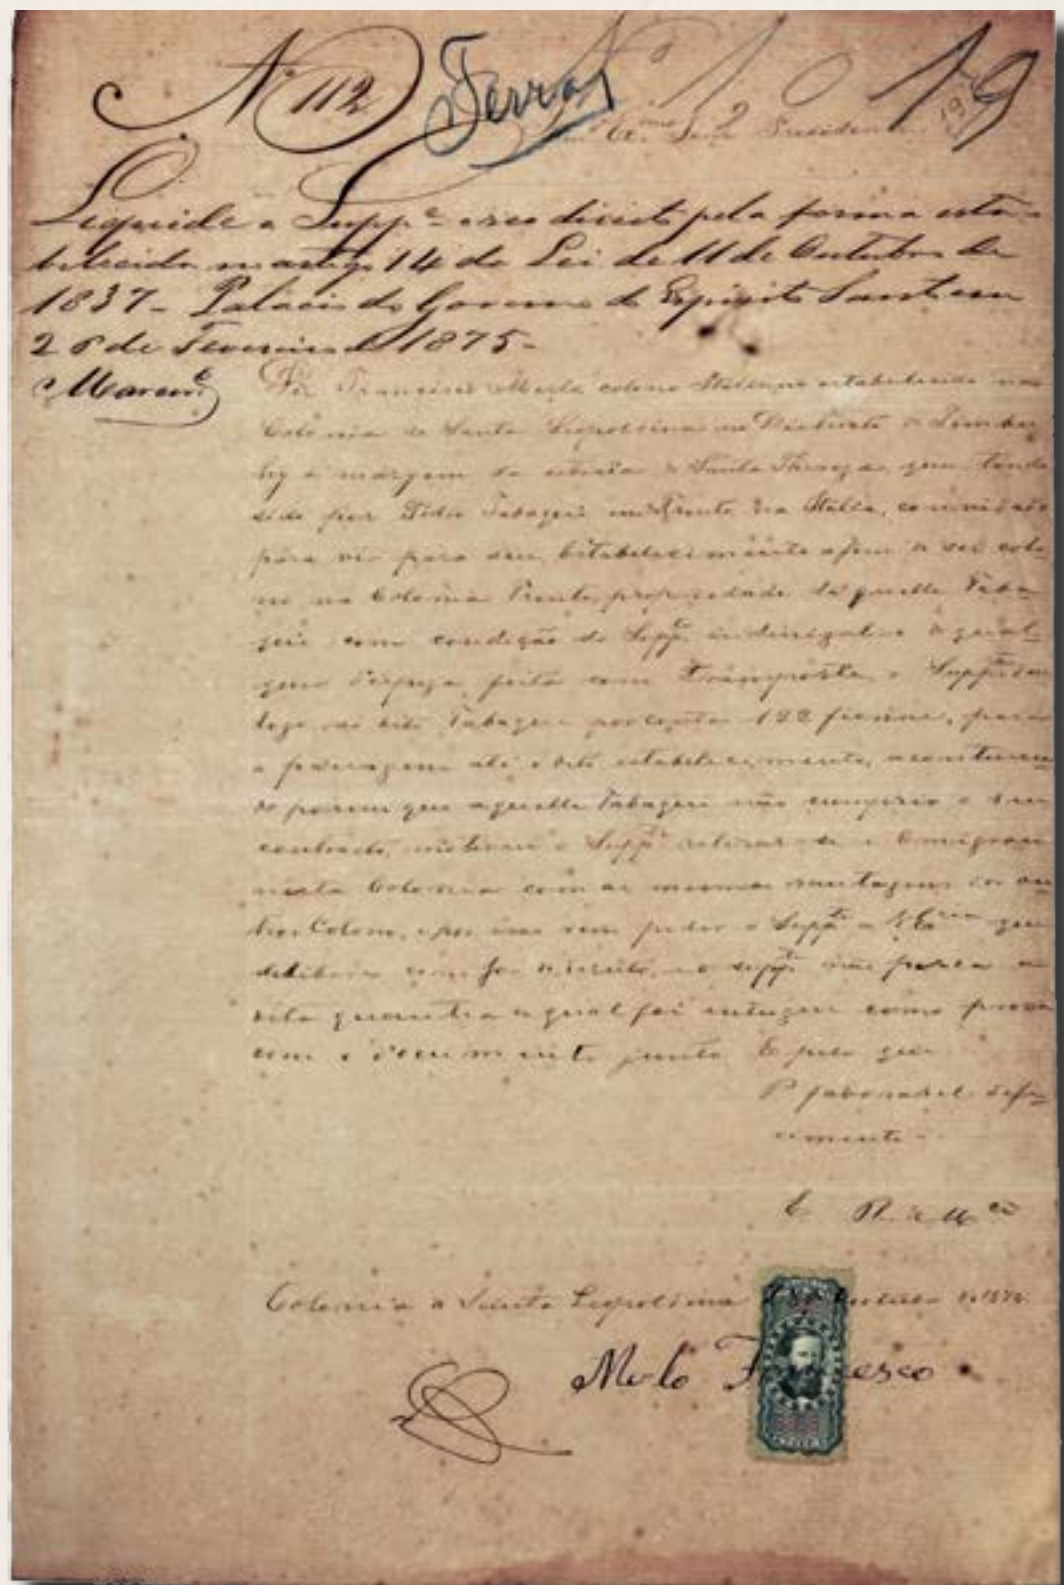 Nº 112 Terras Nº 1019
Illmo Exmo Snr Presidente
Liquide o Suppe o seo direito pela forma esta-
belecida no artigo 14 da Lei de 11 de Outubro de
1837 - Palacio do Governo do Espirito Santo em
26 de Fevereiro de 1875 -
Diz Francisco Merlo colono Italiano estabelecido na
Colonia de Santa Leopoldina no Districto de Timbu-
hy a margem da estrada de Santa Thereza, que tendo
sido por Pedro Tabaqui em Trento, na Italia, convidado
para vir para seu Estabelecimento afim de ser colo-
no na Colonia Trento, propriedade daquelle Taba-
qui com condição do Suppte indenizal-o de qual-
quer despeza feita com transporte, o Suppte deu
logo ao dito Tabaqui por conta 122 fiorins, para
a passagem até o dito estabelecimento, acontecen-
do porem que aquelle Tabaqui não cumprio o seu
contracto, motivou o Suppte retirar-se e
nesta Colonia com as mesmas vantagens dos ou-
tros Colonos, e por isso vem pedir o Suppte a V. Excia que
delibere como for de direito, e o suppte não perca a
dita quantia a qual foi entregue como prova
com o documento junto E pelo que
P. favoravel defe-
rimento -
E. R. Mce
Colonia de Santa Leopoldina
Merlo Francesco